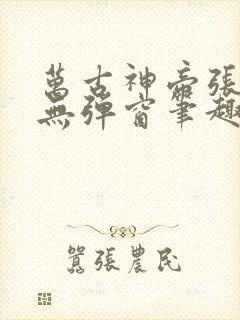 萬古神帝張
無彈窗筆趣
囂張農民